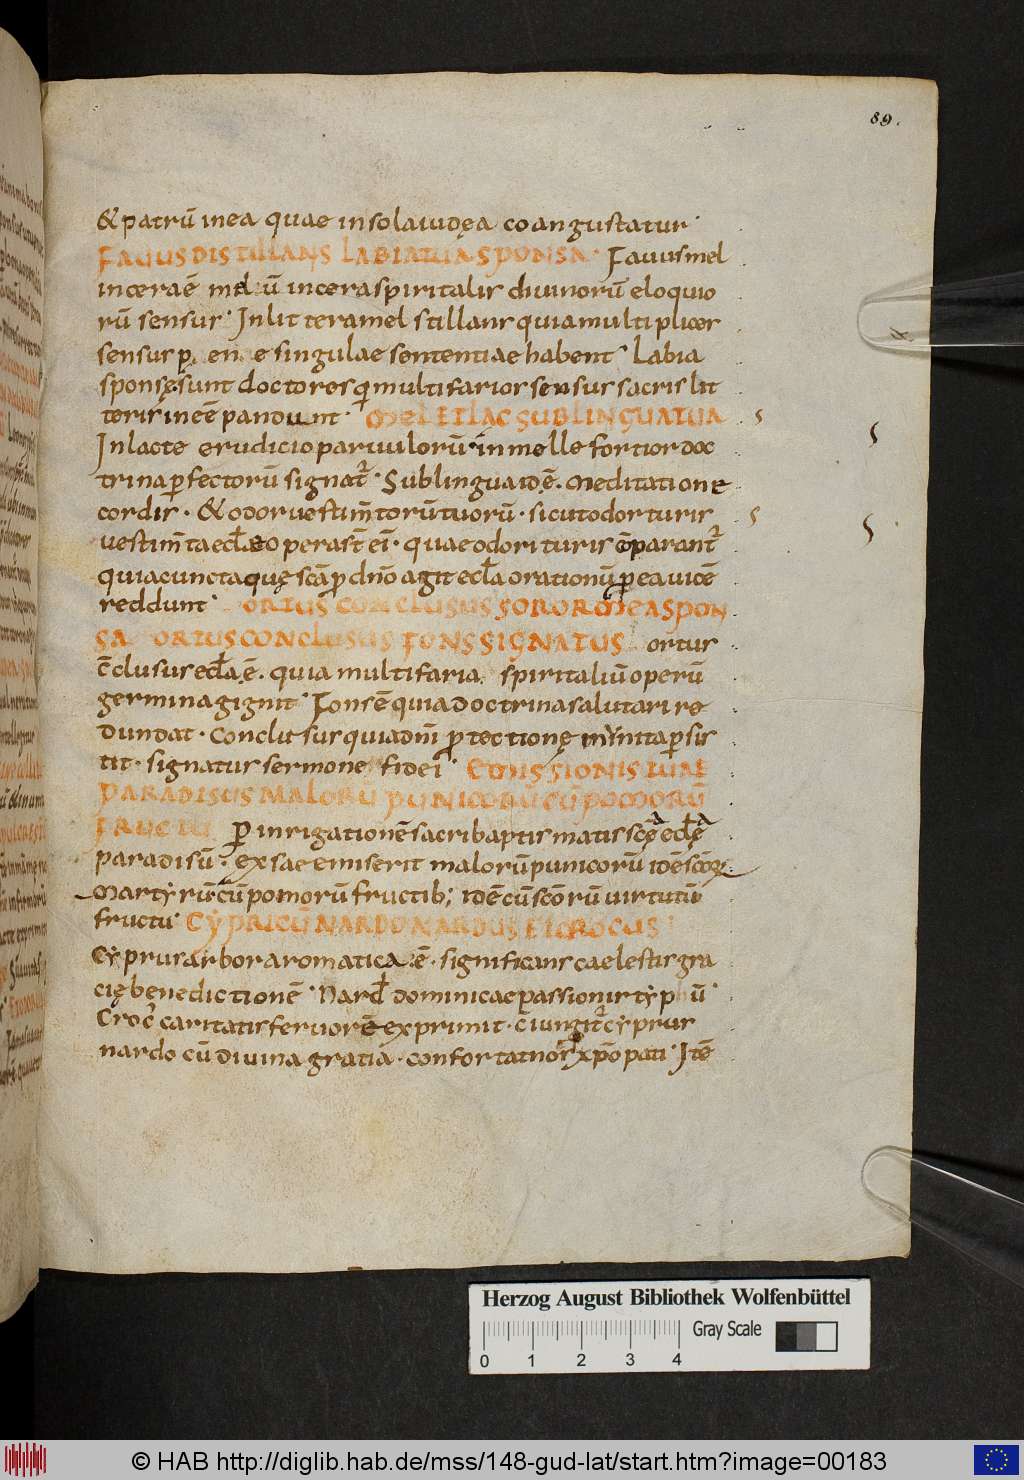 89.
& patrū inea quae insola iudęa coangustatur
FAUUS DISTILLANS LABIA TUA SPONSA. Fauus mel
incera ē mel ū incera spiritalis diuinorū eloquio
rū sensus. In lit teramel stillans quia multiplices
sensus singulae sententiae habent. Labia
sponsę sunt doctores qi multifarios sensus sacris lit
teris ineē pandunt. MEL ET LAC SUB LINGUA TUA
In lacte erudicio paruulorū in melle fortior doc
trina pfectorū signat. Sub lingua id ē. meditatione
cordis. & odor uestimtorū tuorū. sicut odor turis
uestimta eccla operast ei. quae odori turis cparant
quia cuncta quę scā p dnō agit eccla orationū p ea uicē
reddunt. ORTUS CONCLUSUS SOROR MEA SPON
SA ORTUS CONCLUSUS FONS SIGNATUS ortus
cclusus eccla ē. quia multifaria spiritaliū operū
germina gignit. Fons ē quia doctrina salutari re
dundat. Conclusus quia dni ptectione munita psis
tit. signatus sermone fidei. EMISSIONIS TUAE
PARADISUS MALORU PUNICORŪ CŪ POMORŪ
FRUCTU p inrigationē sacri baptismatis scę eclę
paradisū. ex sae emiserit malorū punicorū idē scorū
martyrū cū pomorū fructib; idē cū scorū uirtutū
fructu. CYPRI CŪ NARDO NARDUS ET CROCUS
Cyprus arbor aromatica ē. significans caelestis gra
cię benedictionē. Nard dominicae passionis typ ū.
Croc caritatis feruorē exprimit. ciungit cyprus
nardo cū diuina gratia. confortat nos xpo pati. Itē
Herzog August Bibliothek Wolfenbüttel
Gray Scale
0 1 2 3 4
© HAB http://diglib.hab.de/mss/148-gud-lat/start.htm?image=00183